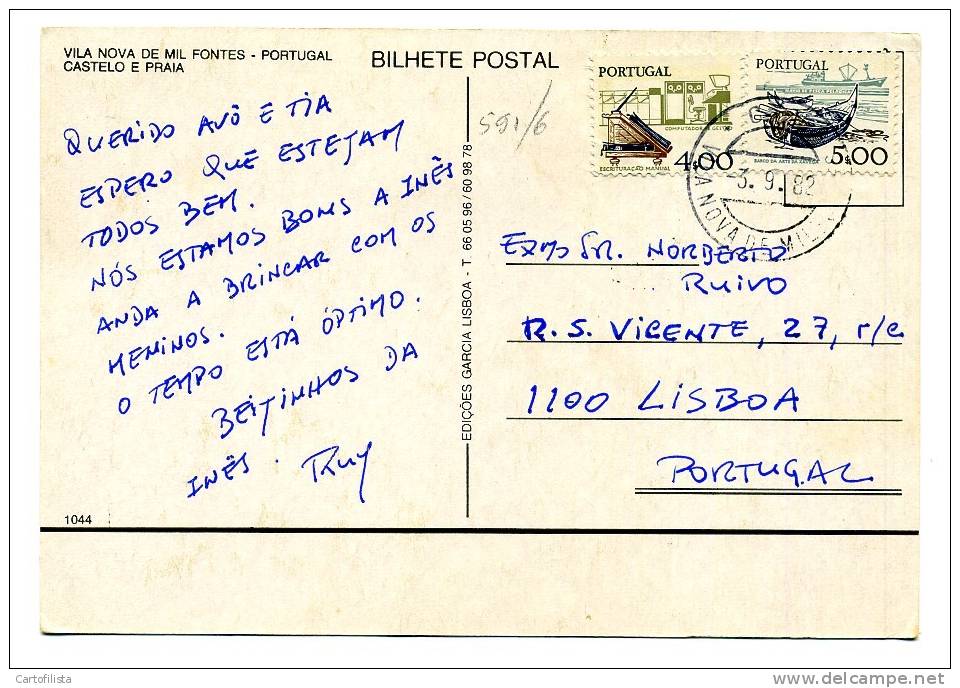 VILA NOVA DE MIL FONTES - PORTUGAL
CASTELO E PRAIA
BILHETE POSTAL
QUERIDO AVÔ E TIA
ESPERO QUE ESTEJAM
TODOS BEM.
NÓS ESTAMOS BONS A INÊS
ANDA A BRINCAR COM OS
MENINOS.
O TEMPO ESTÁ ÓPTIMO.
BEIJINHOS DA
INÊS. Ruy
1044
EDIÇÕES GARCIA LISBOA - T. 66 05 96 / 60 98 78
591/6
PORTUGAL
COMPUTADOR DE GESTÃO
ESCRITURAÇÃO MANUAL
4$00
PORTUGAL
NAVIO DE PESCA PELÁGICA
BARCO DA ARTE DA XÁVEGA
5$00
3.9.82
VILA NOVA DE MIL
EXMO SR. NORBERTO
RUIVO
R. S. VICENTE, 27, r/c
1100 LISBOA
PORTUGAL
Cartofilista
delcampe.net